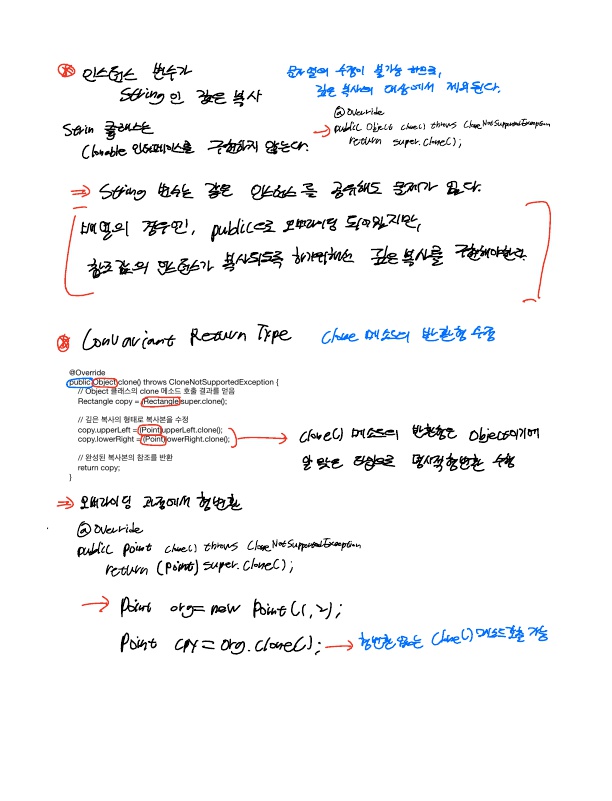 인스턴스 변수가
String인 깊은 복사
문자열의 수정이 불가능 하므로,
깊은 복사의 대상에서 제외된다.
Strin 클래스는
Clonable 인터페이스를 구현하지 않는다.
@Override
→ public Object clone() throws CloneNotSupportedException
return super.clone();
⇒ String 변수는 같은 인스턴스를 공유해도 문제가 없다.
배열의 경우엔, public으로 오버라이딩 되어있지만,
참조값의 인스턴스가 복사되도록 하기위해선 깊은 복사를 구현해야한다.
Convariant Return Type
clone 메소드의 반환형 수정
@Override
public Object clone() throws CloneNotSupportedException {
// Object 클래스의 clone 메소드 호출 결과를 얻음
Rectangle copy = (Rectangle)super.clone();
// 깊은 복사의 형태로 복사본을 수정
copy.upperLeft = (Point)upperLeft.clone();
copy.lowerRight = (Point)lowerRight.clone();
// 완성된 복사본의 참조를 반환
return copy;
}
→ clone() 메소드의 반환형은 Object이기에
알맞은 타입으로 명시적 형변환 수행
⇒ 오버라이딩 과정에서 형변환
@Override
public Point clone() throws CloneNotSupportedException
return (Point) super.clone();
→ Point org = new Point(1,2);
Point cpy = org.clone(); → 형변환 없는 clone() 메소드 호출 가능